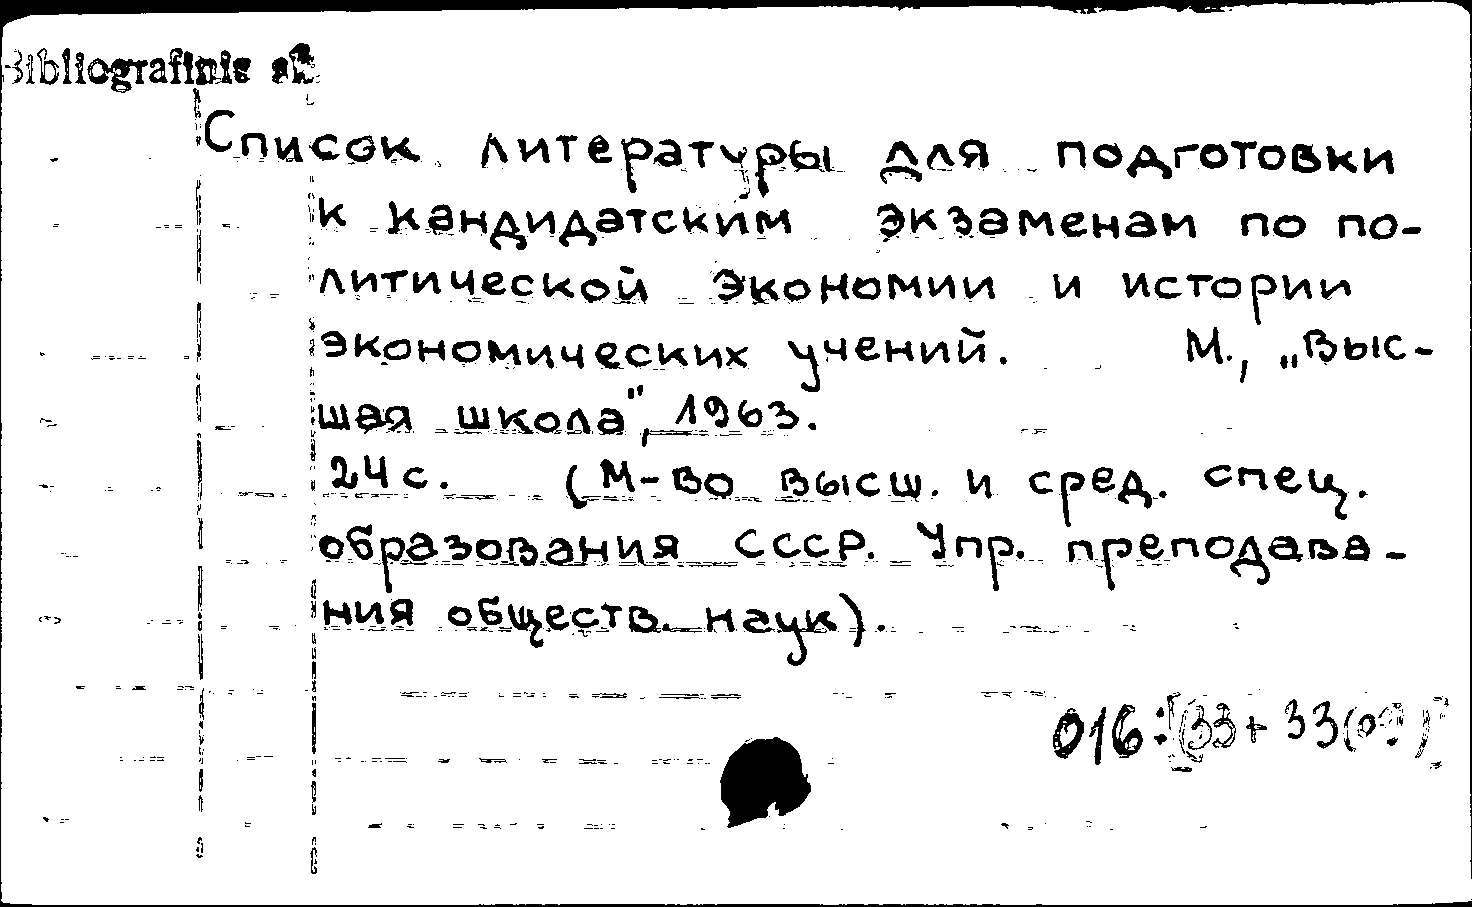 Bibliografinis sk.
Список литературы для подготовки
к кандидатским экзаменам по по-
литической экономии и истории
экономических учений. М., „Выс-
шая школа", 1963.
24 с. (М-во высш. и сред. спец.
образования СССР. Упр. преподава-
ния обществ. наук).
016:[(33+33(09)]